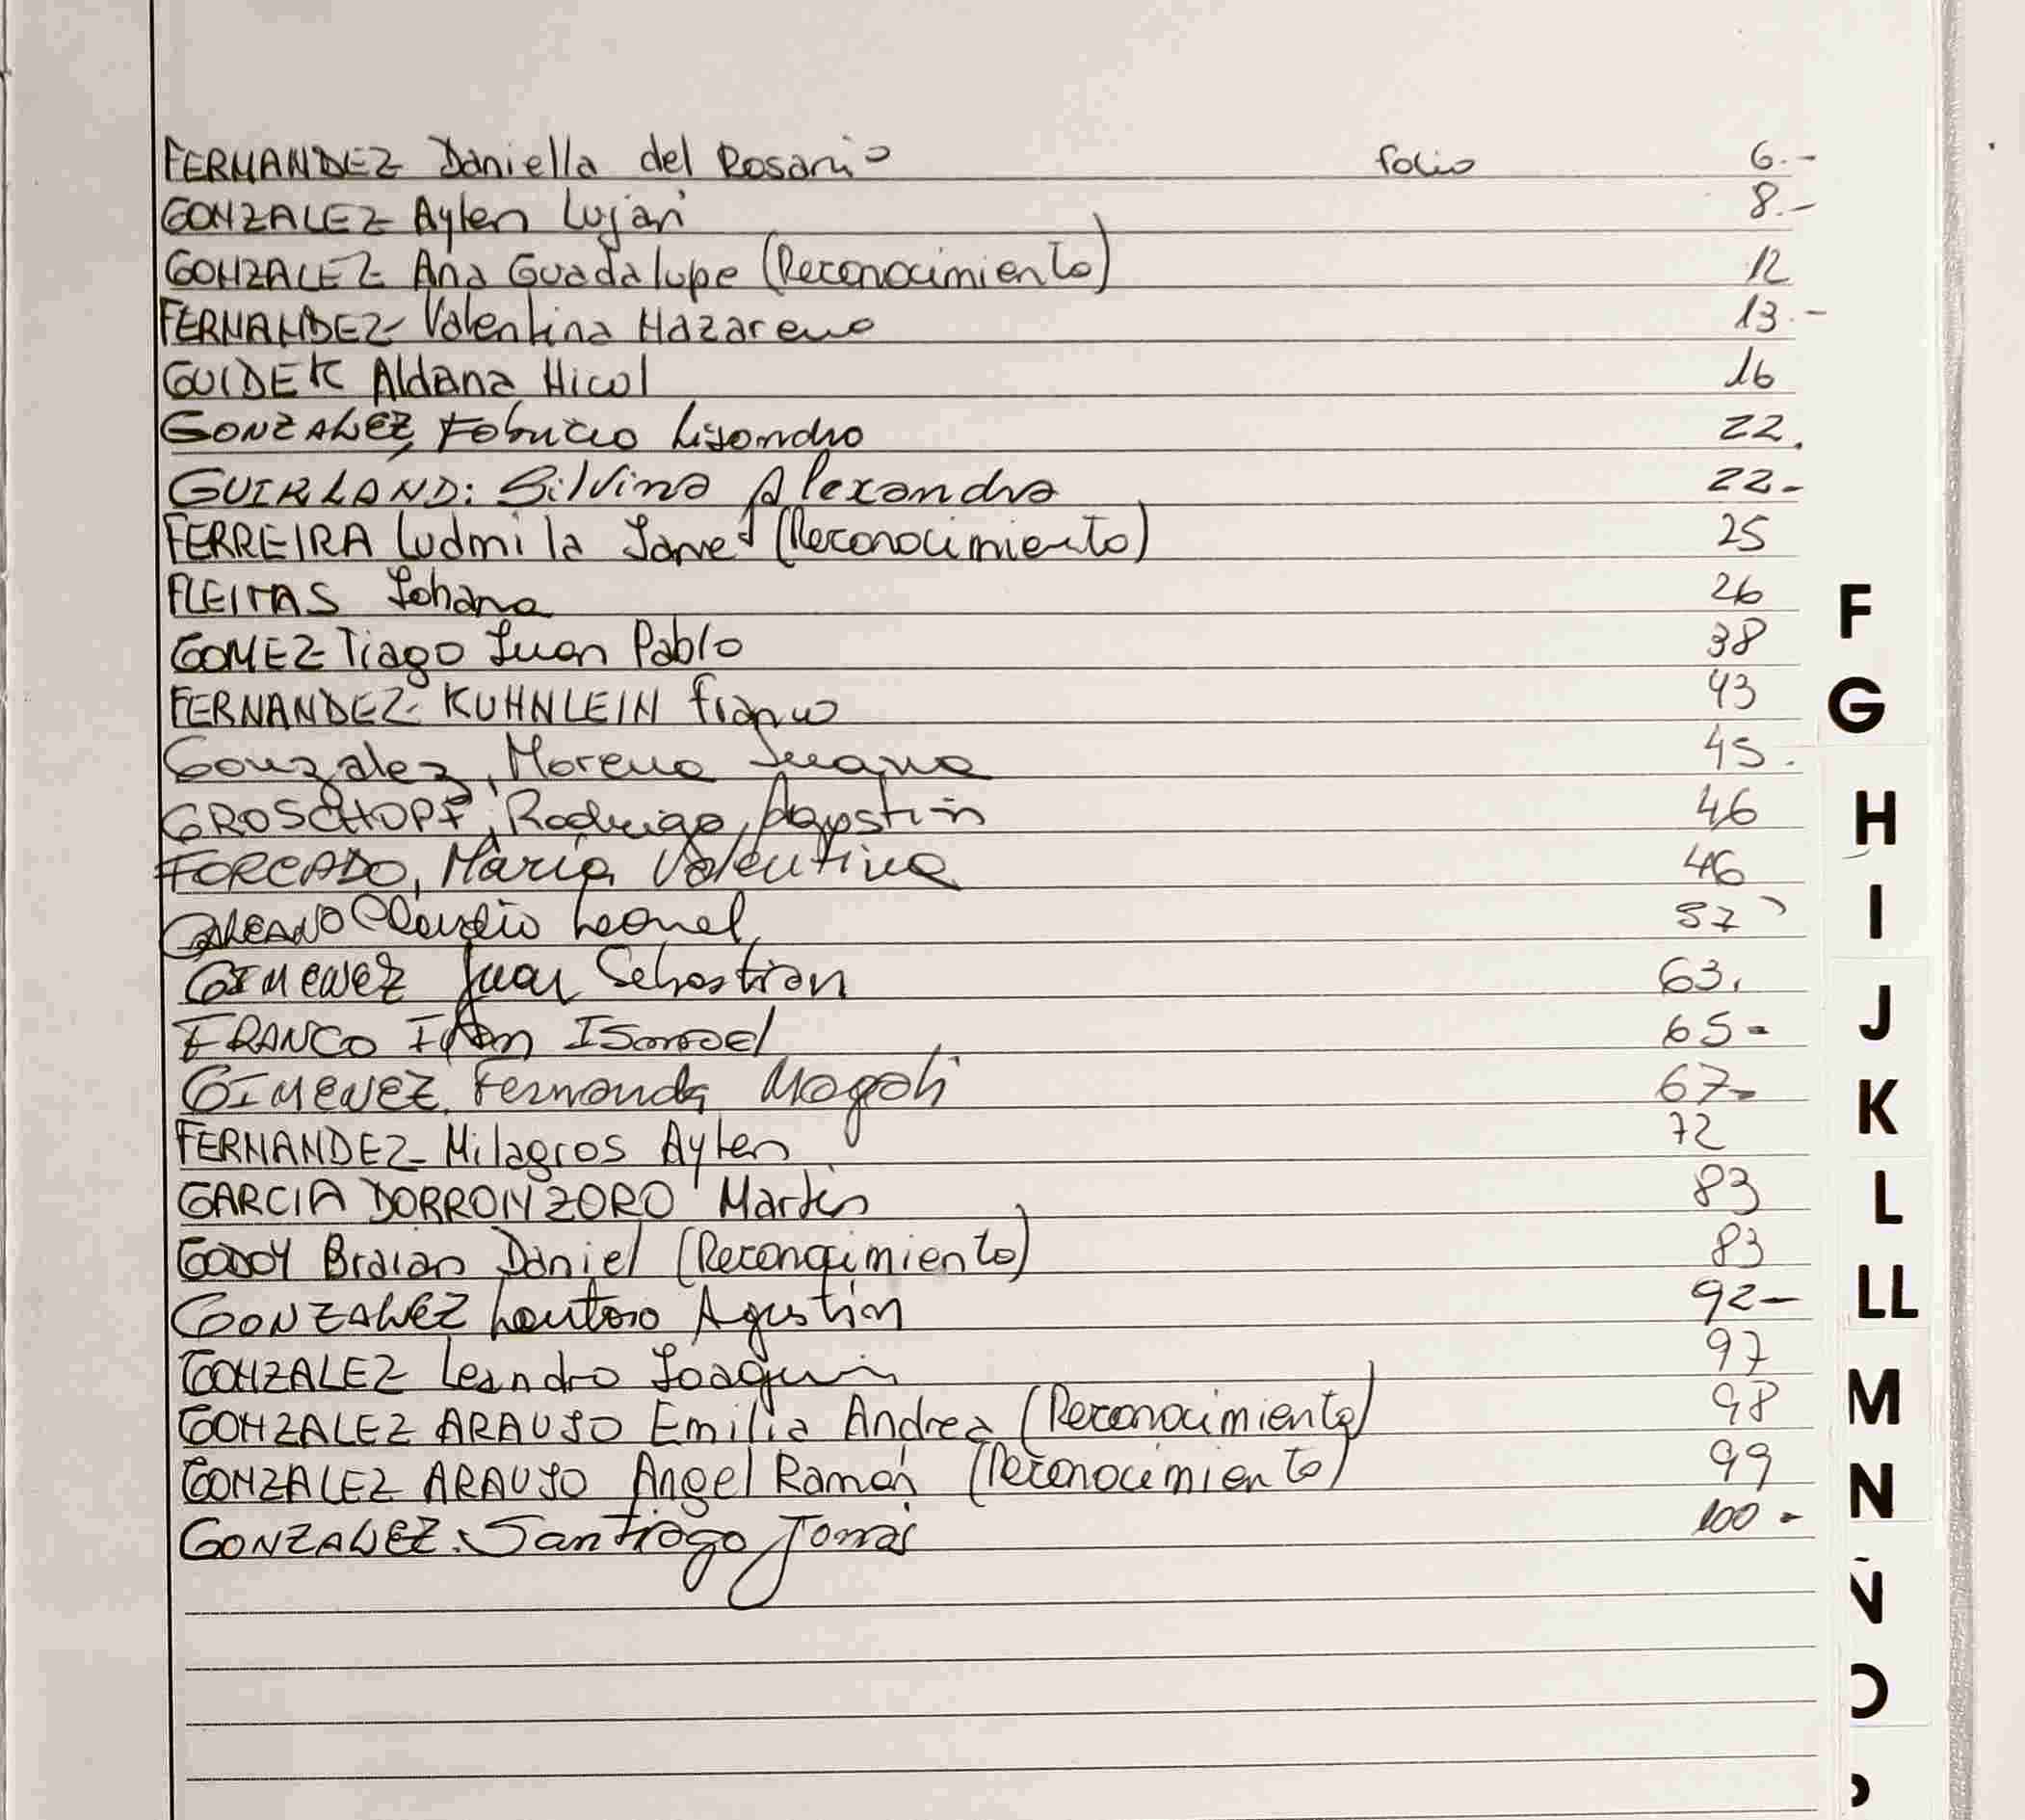 FERNANDEZ Daniella del Rosario folio 6.-
GONZALEZ Aylen Lujan 8.-
GONZALEZ Ana Guadalupe (Reconocimiento) 12
FERNANDEZ Valentina Nazareno 13.-
GUIDEK Aldana Nicol 16
GONZALEZ, Fabricio Lisandro 22.
GUIRLAND: Silvina Alexandra 22-
FERREIRA Ludmila Janet (Reconocimiento) 25
FLEITAS Johana 26
F
GOMEZ Tiago Juan Pablo 38
FERNANDEZ KUHNLEIN Franco 43
G
Gonzalez, Morena Juana 45.
GROSCHOPF, Rodrigo, Agostin 46
H
FORCADO, María Valentina 46
GALEANO Claudio Leonel 57
I
GIMENEZ Juan Sebastian 63.
FRANCO Ivan Ismael 65-
J
GIMENEZ, Fernanda Magali 67-
K
FERNANDEZ Milagros Aylen 72
GARCIA DORRONZORO Martin 83
L
GODOY Braian Daniel (Reconocimiento) 83
GONZALEZ Lautaro Agustin 92-
LL
GONZALEZ Leandro Joaquin 97
GONZALEZ ARAUJO Emilia Andrea (Reconocimiento) 98
M
GONZALEZ ARAUJO Angel Ramón (Reconocimiento) 99
N
GONZALEZ: Santiago Tomás 100-
Ñ
O
P